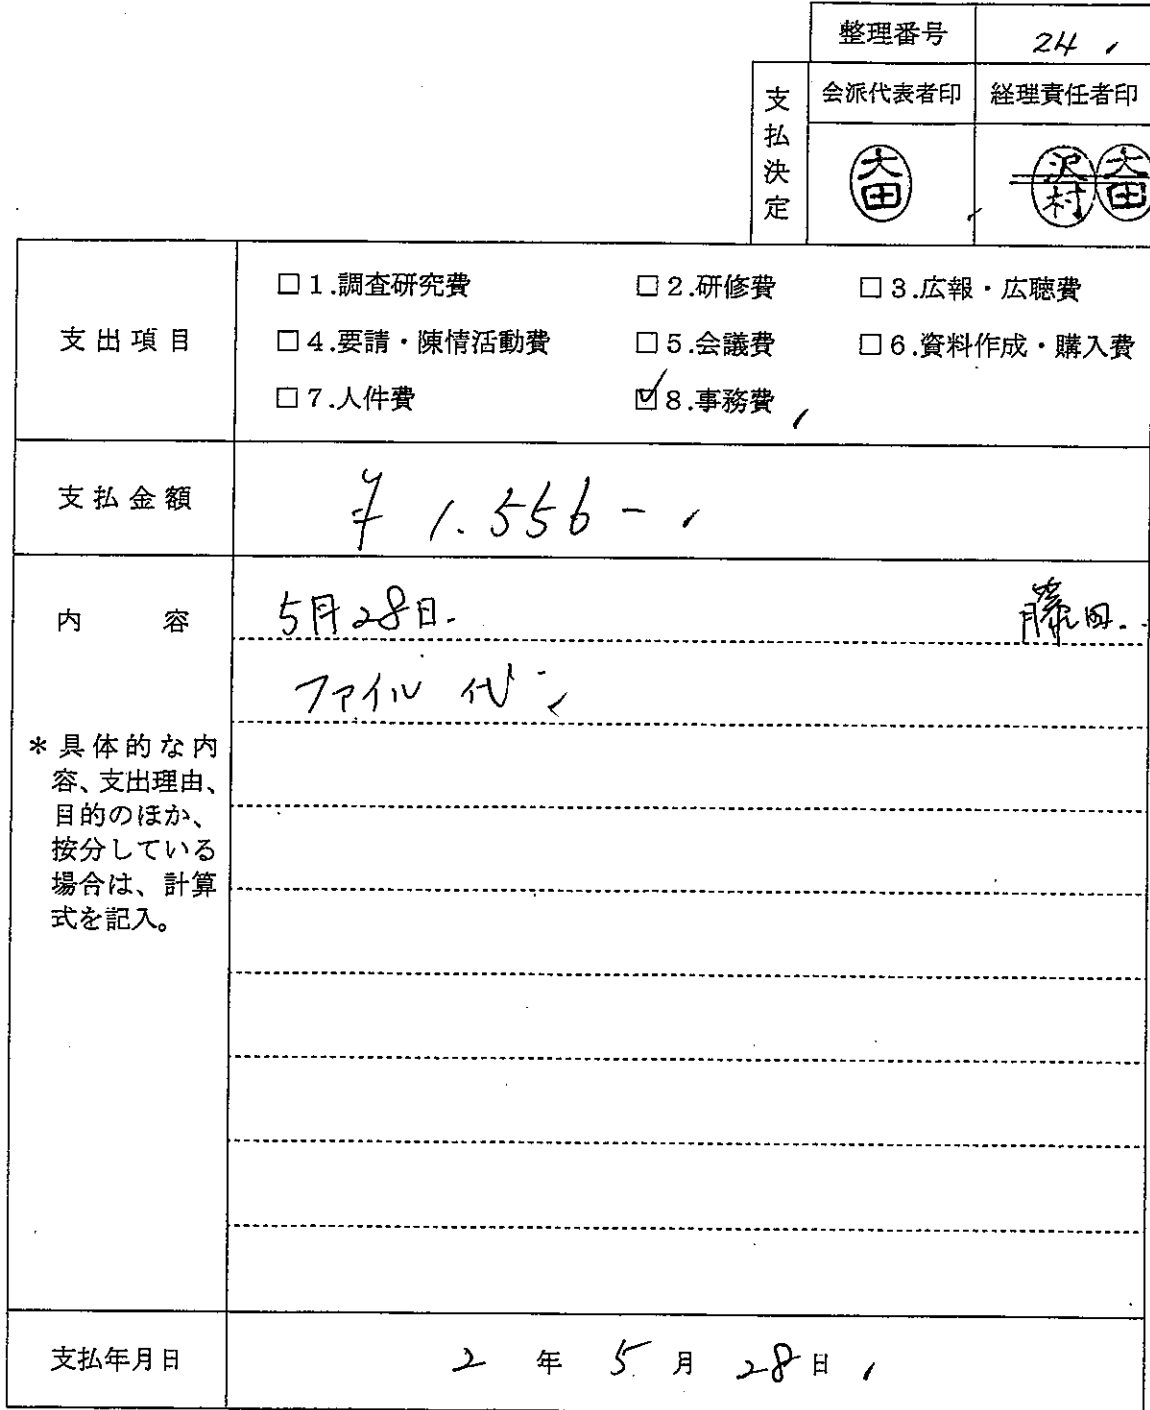 整理番号 24
支払決定 会派代表者印 経理責任者印
大田 沢村 大田
支出項目 □1.調査研究費 □2.研修費 □3.広報・広聴費
□4.要請・陳情活動費 □5.会議費 □6.資料作成・購入費
□7.人件費 ☑8.事務費
支払金額 ¥1.556-
内容 5月28日. 藤田.
ファイル代
*具体的な内
容、支出理由、
目的のほか、
按分している
場合は、計算
式を記入。
支払年月日 2年5月28日